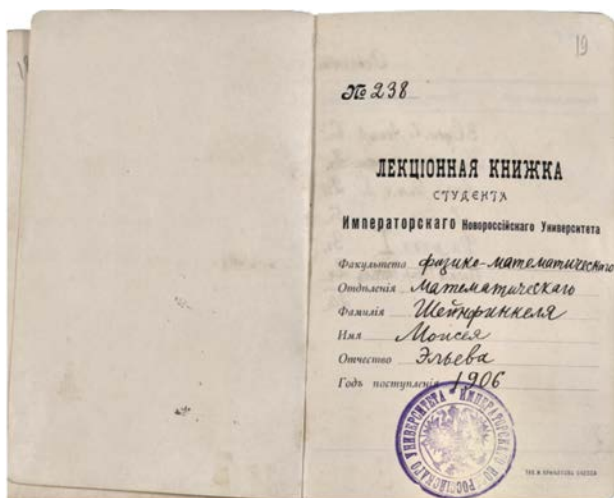 19
№ 238
ЛЕКЦІОННАЯ КНИЖКА
СТУДЕНТА
Императорскаго Новороссійскаго Университета
Факультета физико-математическаго
Отдѣленія Математическаго
Фамилія Шейнфинкеля
Имя Моисея
Отчество Эльева
Годъ поступленія 1906
ИМПЕРАТОРСКАГО НОВОРОССІЙСКАГО УНИВЕРСИТЕТА